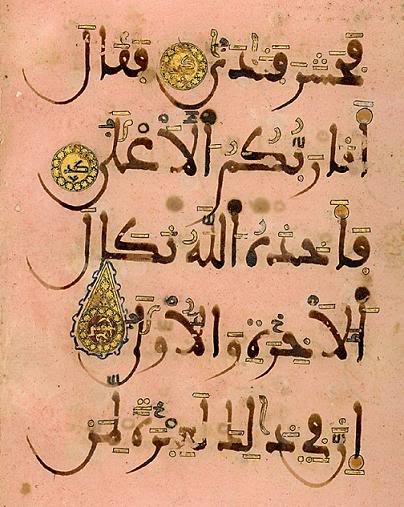 فحشر فندى فقال
أنا ربكم الأعلى
فأخذه الله نكال
الأخرة والأولى
إن في ذلك لعبرة لمن